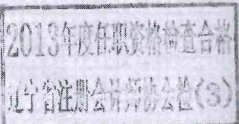 2013年度任职资格检查合格
辽宁省注册会计师协会检(3)